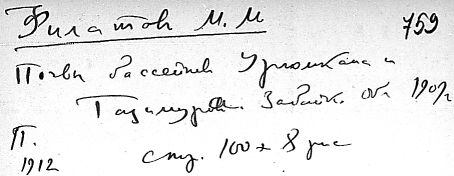 Филатов М. М 759
Почвы бассейнов Урюмкана и
Газимура. Забайк. обл 190
П. стр. 100 + 8 рис
1912